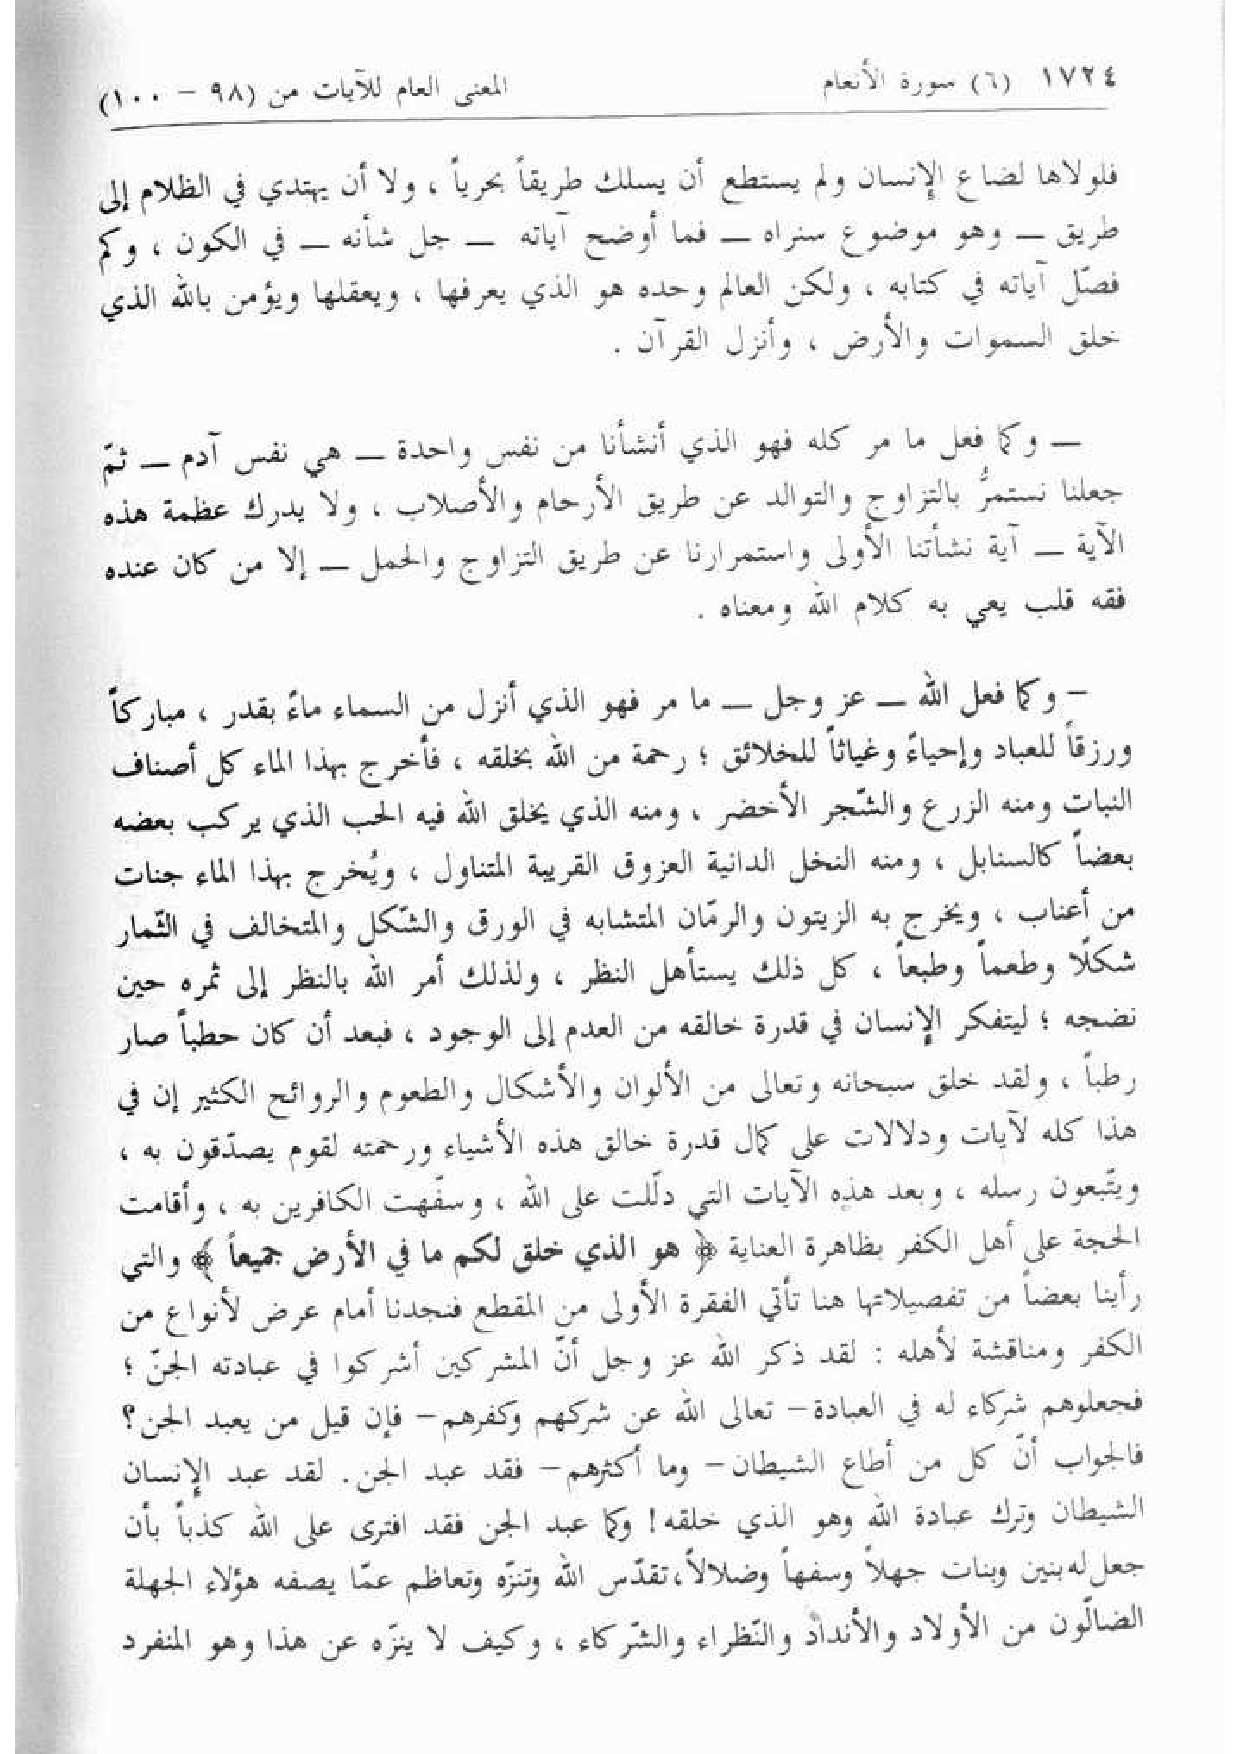 ١٧٢٤ (٦) سورة الأنعام المعنى العام للآيات من (٩٨ - ١٠٠)
فلولاها لضاع الإنسان ولم يستطع أن يسلك طريقاً بحرياً ، ولا أن يهتدي في الظلام إلى
طريق ــ وهو موضوع سنراه ــ فما أوضح آياته ــ جل شأنه ــ في الكون ، وكم
فصّل آياته في كتابه ، ولكن العالم وحده هو الذي يعرفها ، ويعقلها ويؤمن بالله الذي
خلق السموات والأرض ، وأنزل القرآن .
ــ وكما فعل ما مر كله فهو الذي أنشأنا من نفس واحدة ــ هي نفس آدم ــ ثمّ
جعلنا نستمرُّ بالتزاوج والتوالد عن طريق الأرحام والأصلاب ، ولا يدرك عظمة هذه
الآية ــ آية نشأتنا الأولى واستمرارنا عن طريق التزاوج والحمل ــ إلا من كان عنده
فقه قلب يعي به كلام الله ومعناه .
- وكما فعل الله ــ عز وجل ــ ما مر فهو الذي أنزل من السماء ماءً بقدر ، مباركاً
ورزقاً للعباد وإحياءً وغياثاً للخلائق ؛ رحمة من الله بخلقه ، فأخرج بهذا الماء كل أصناف
النبات ومنه الزرع والشّجر الأخضر ، ومنه الذي يخلق الله فيه الحب الذي يركب بعضه
بعضاً كالسنابل ، ومنه النخل الدانية العزوق القريبة المتناول ، ويُخرج بهذا الماء جنات
من أعناب ، ويخرج به الزيتون والرمّان المتشابه في الورق والشّكل والمتخالف في الثّمار
شكلًا وطعماً وطبعاً ، كل ذلك يستأهل النظر ، ولذلك أمر الله بالنظر إلى ثمره حين
نضجه ؛ ليتفكر الإنسان في قدرة خالقه من العدم إلى الوجود ، فبعد أن كان حطباً صار
رطباً ، ولقد خلق سبحانه وتعالى من الألوان والأشكال والطعوم والروائح الكثير إن في
هذا كله لآيات ودلالات على كمال قدرة خالق هذه الأشياء ورحمته لقوم يصدّقون به ،
ويتّبعون رسله ، وبعد هذه الآيات التي دلّلت على الله ، وسفّهت الكافرين به ، وأقامت
الحجة على أهل الكفر بظاهرة العناية ﴿ هو الذي خلق لكم ما في الأرض جميعاً ﴾ والتي
رأينا بعضاً من تفصيلاتها هنا تأتي الفقرة الأولى من المقطع فنجدنا أمام عرض لأنواع من
الكفر ومناقشة لأهله : لقد ذكر الله عز وجل أنّ المشركين أشركوا في عبادته الجنّ ؛
فجعلوهم شركاء له في العبادة- تعالى الله عن شركهم وكفرهم- فإن قيل من يعبد الجن؟
فالجواب أنّ كل من أطاع الشيطان- وما أكثرهم- فقد عبد الجن. لقد عبد الإنسان
الشيطان وترك عبادة الله وهو الذي خلقه! وكما عبد الجن فقد افترى على الله كذباً بأن
جعل له بنين وبنات جهلاً وسفهاً وضلالاً، تقدّس الله وتنزّه وتعاظم عمّا يصفه هؤلاء الجهلة
الضالّون من الأولاد والأنداد والنّظراء والشّركاء ، وكيف لا ينزّه عن هذا وهو المنفرد